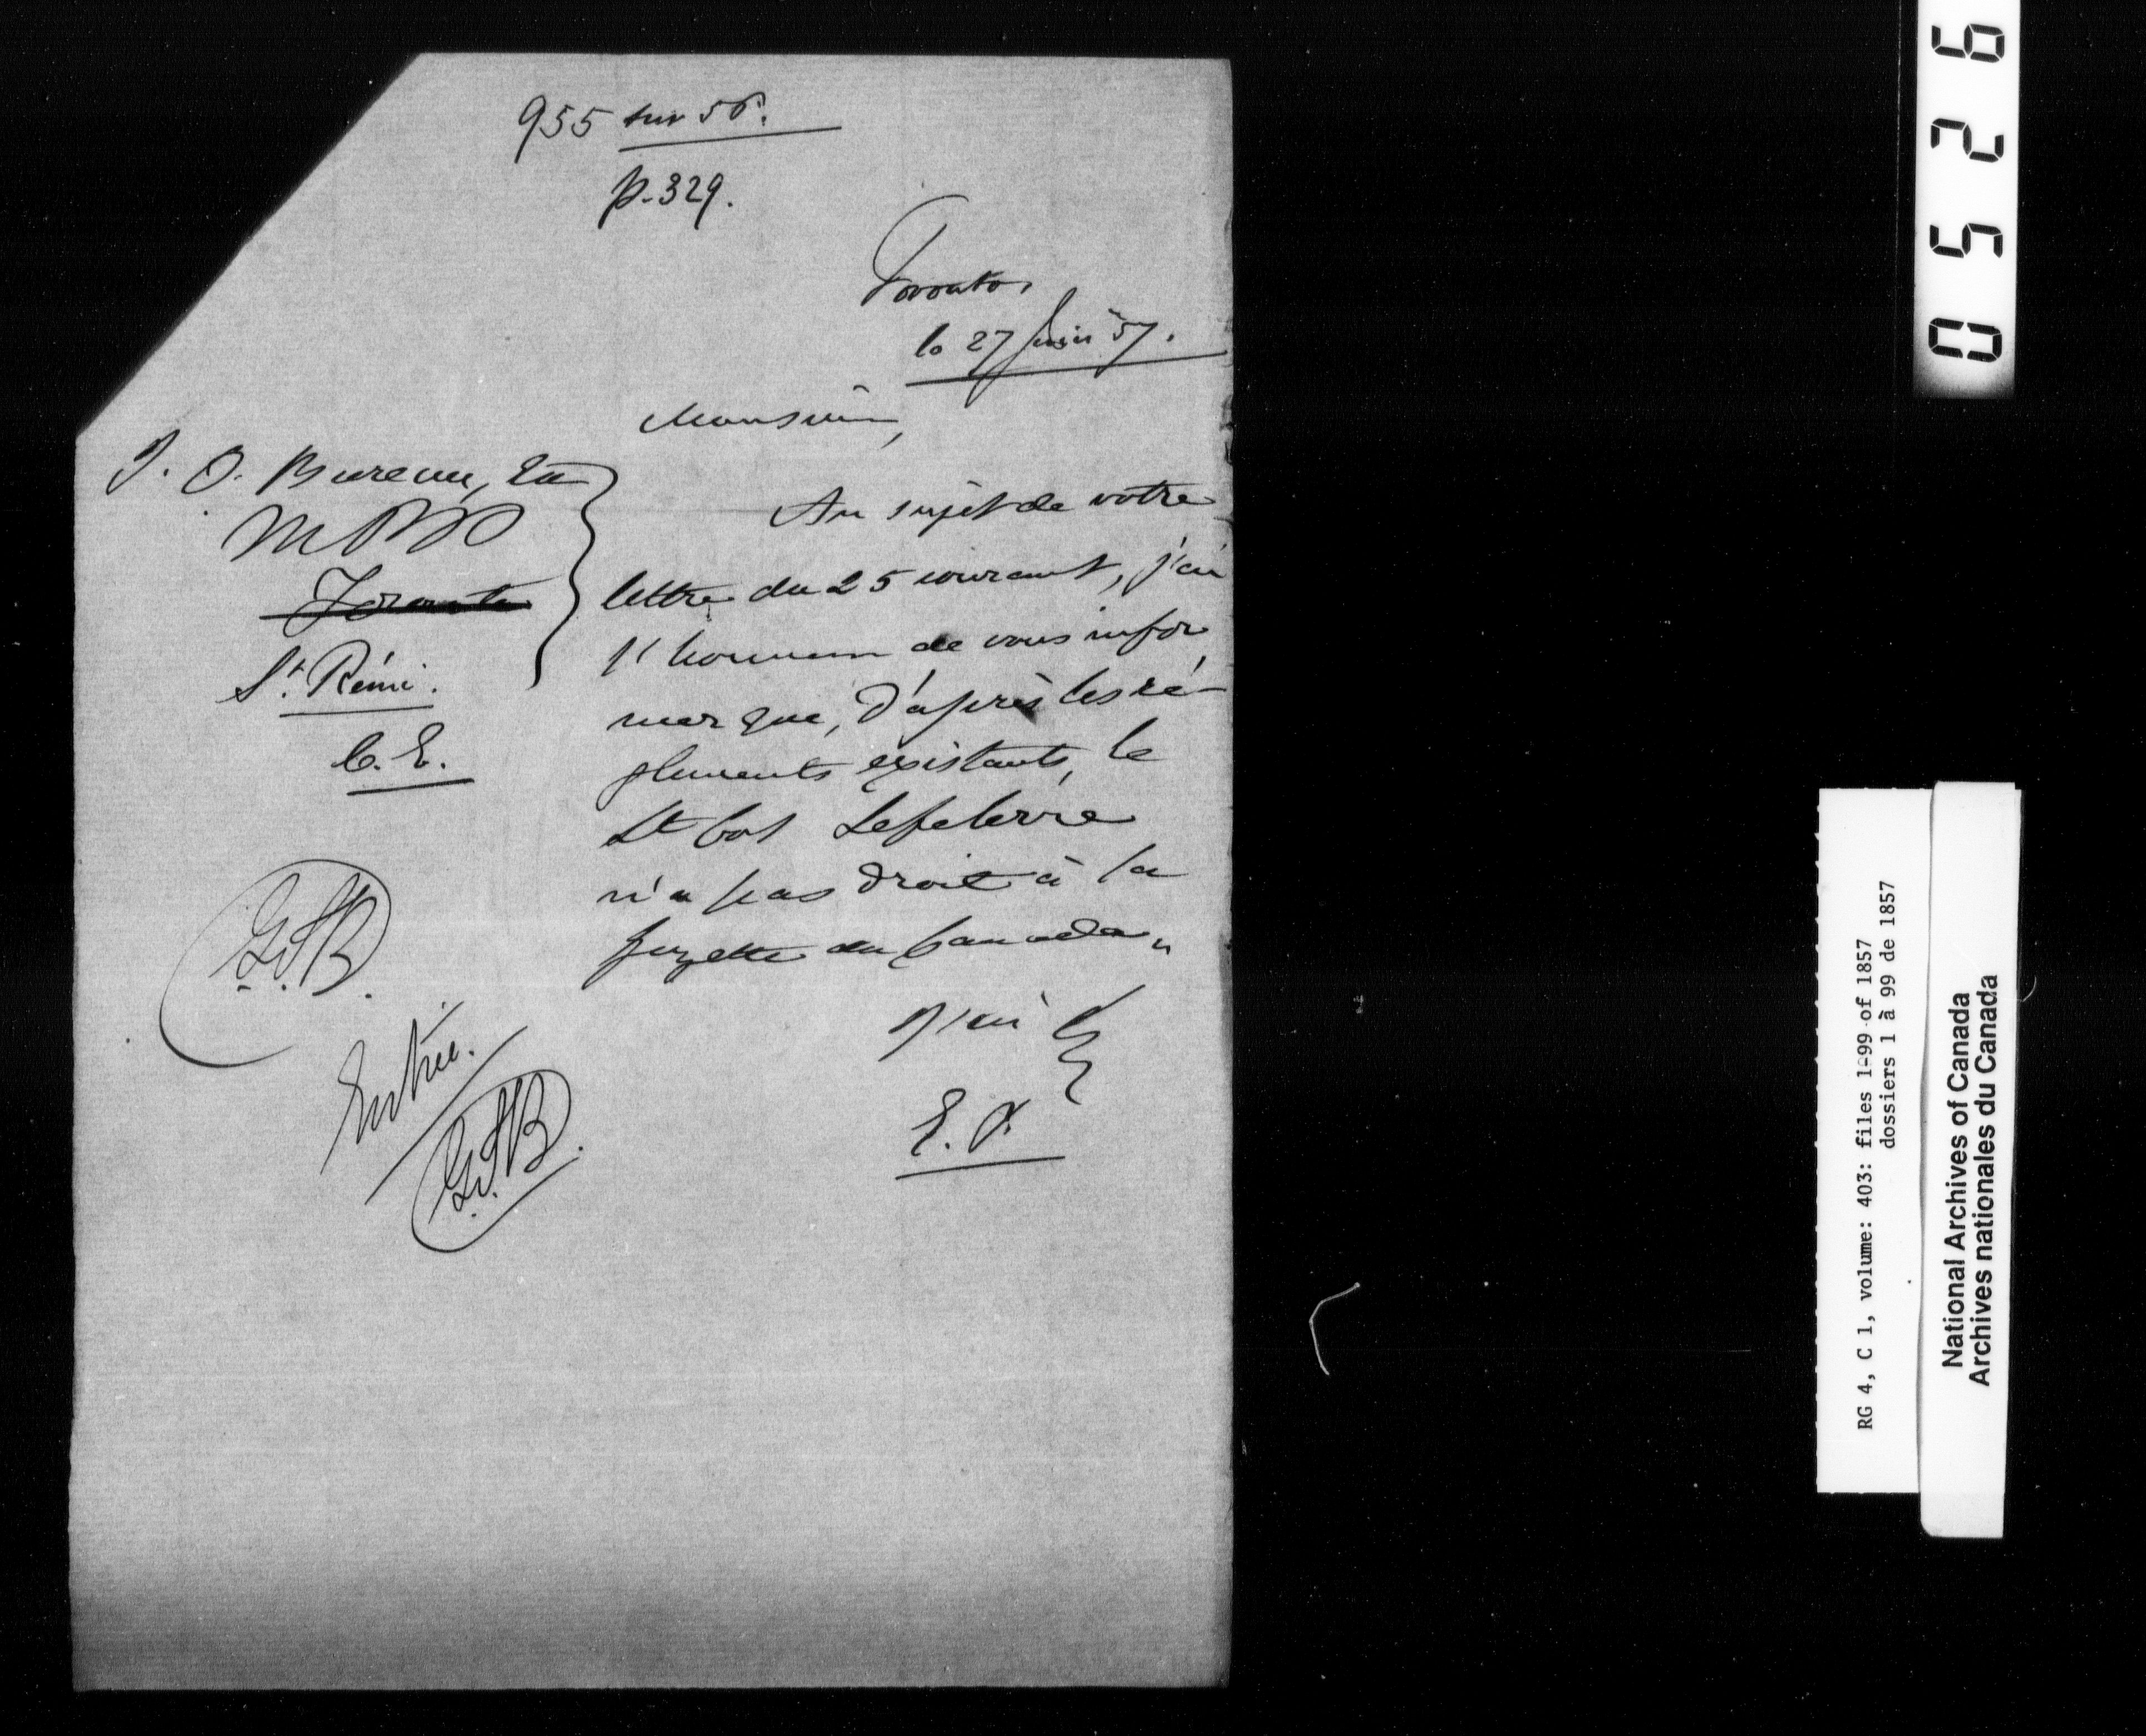 955 sur 56.
p. 329.
Toronto,
le 27 Juin 57.
Monsieur,
J. O. Bureau, Ecr
M P P
Toronto
St. Rémi.
C. E.
Au sujet de votre
lettre du 25 courant, j'ai
l'honneur de vous infor
mer que, d'après les ré-
glements existants, le
Lt Col Lefebvre
n'a pas droit à la
gazette du Canada
J'ai &
E. P.
Entrée.
0526
RG 4, C 1, volume: 403: files 1-99 of 1857
dossiers 1 à 99 de 1857
National Archives of Canada
Archives nationales du Canada